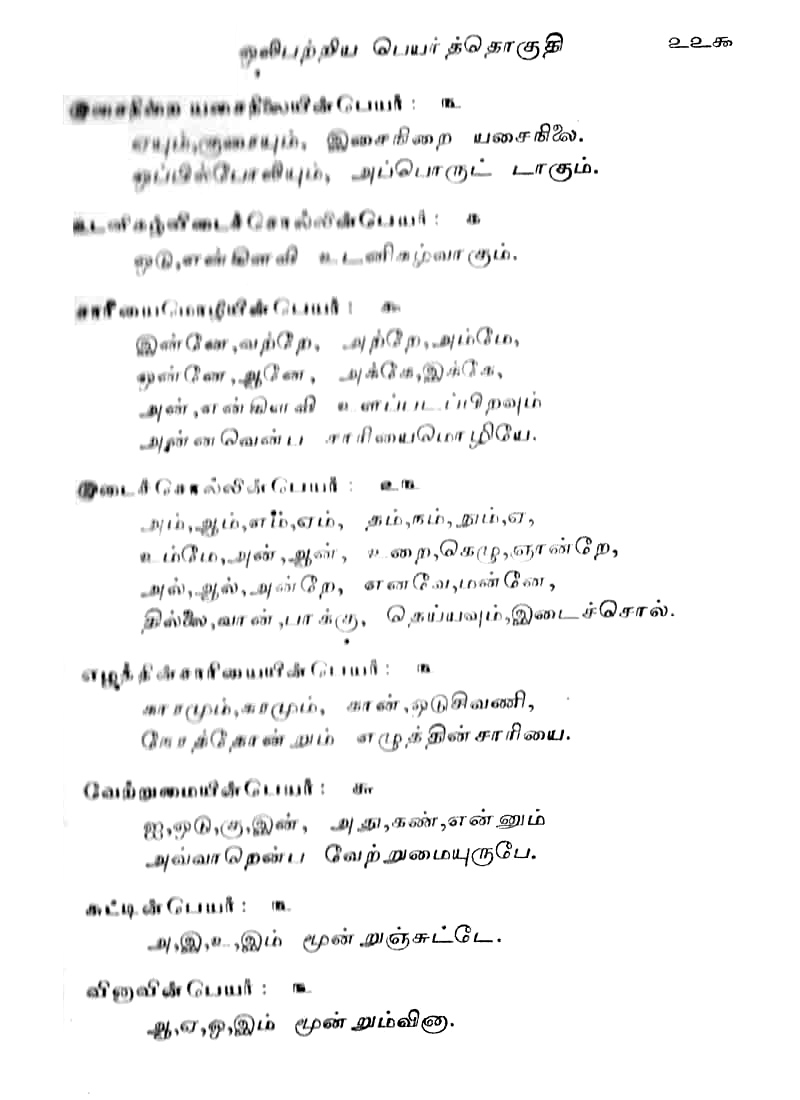 ஒலிபற்றிய பெயர்த்தொகுதி ௨௨௯
இசைநிறை யசைநிலையின்பெயர் : ௩
ஏயும்,குசையும், இசைநிறை யசைநிலை.
ஒப்பில்போலியும், அப்பொருட் டாகும்.
உடனிகழ்விடைச்சொல்லின்பெயர் : ௧
ஒடு,என்கிளவி உடனிகழ்வாகும்.
சாரியைமொழியின்பெயர் : ௯
இன்னே,வற்றே, அற்றே,அம்மே,
ஒன்னே,ஆனே, அக்கே,இக்கே,
அன்,என்கிளவி உளப்படப்பிறவும்
அன்னவென்ப சாரியைமொழியே.
இடைச்சொல்லின்பெயர் : ௨௩
அம்,ஆம்,எம்,ஏம், தம்,நம்,நும்,ஏ,
உம்மே,அன்,ஆன், உறை,கெழு,ஞான்றே,
அல்,ஆல்,அன்றே, எனவே,மன்னே,
தில்லை,வான்,பாக்கு, தெய்யவும்,இடைச்சொல்.
எழுத்தின்சாரியையின்பெயர் : ௩
காரமும்,கரமும், கான்,ஒடுசிவணி,
நேரத்தோன்றும் எழுத்தின்சாரியை.
வேற்றுமையின்பெயர் : ௬
ஐ,ஒடு,கு,இன், அது,கண்,என்னும்
அவ்வாறென்ப வேற்றுமையுருபே.
சுட்டின்பெயர் : ௩
அ,இ,உ,இம் மூன்றுஞ்சுட்டே.
வினாவின்பெயர் : ௩
ஆ,ஏ,ஓ,இம் மூன்றும்வினா.